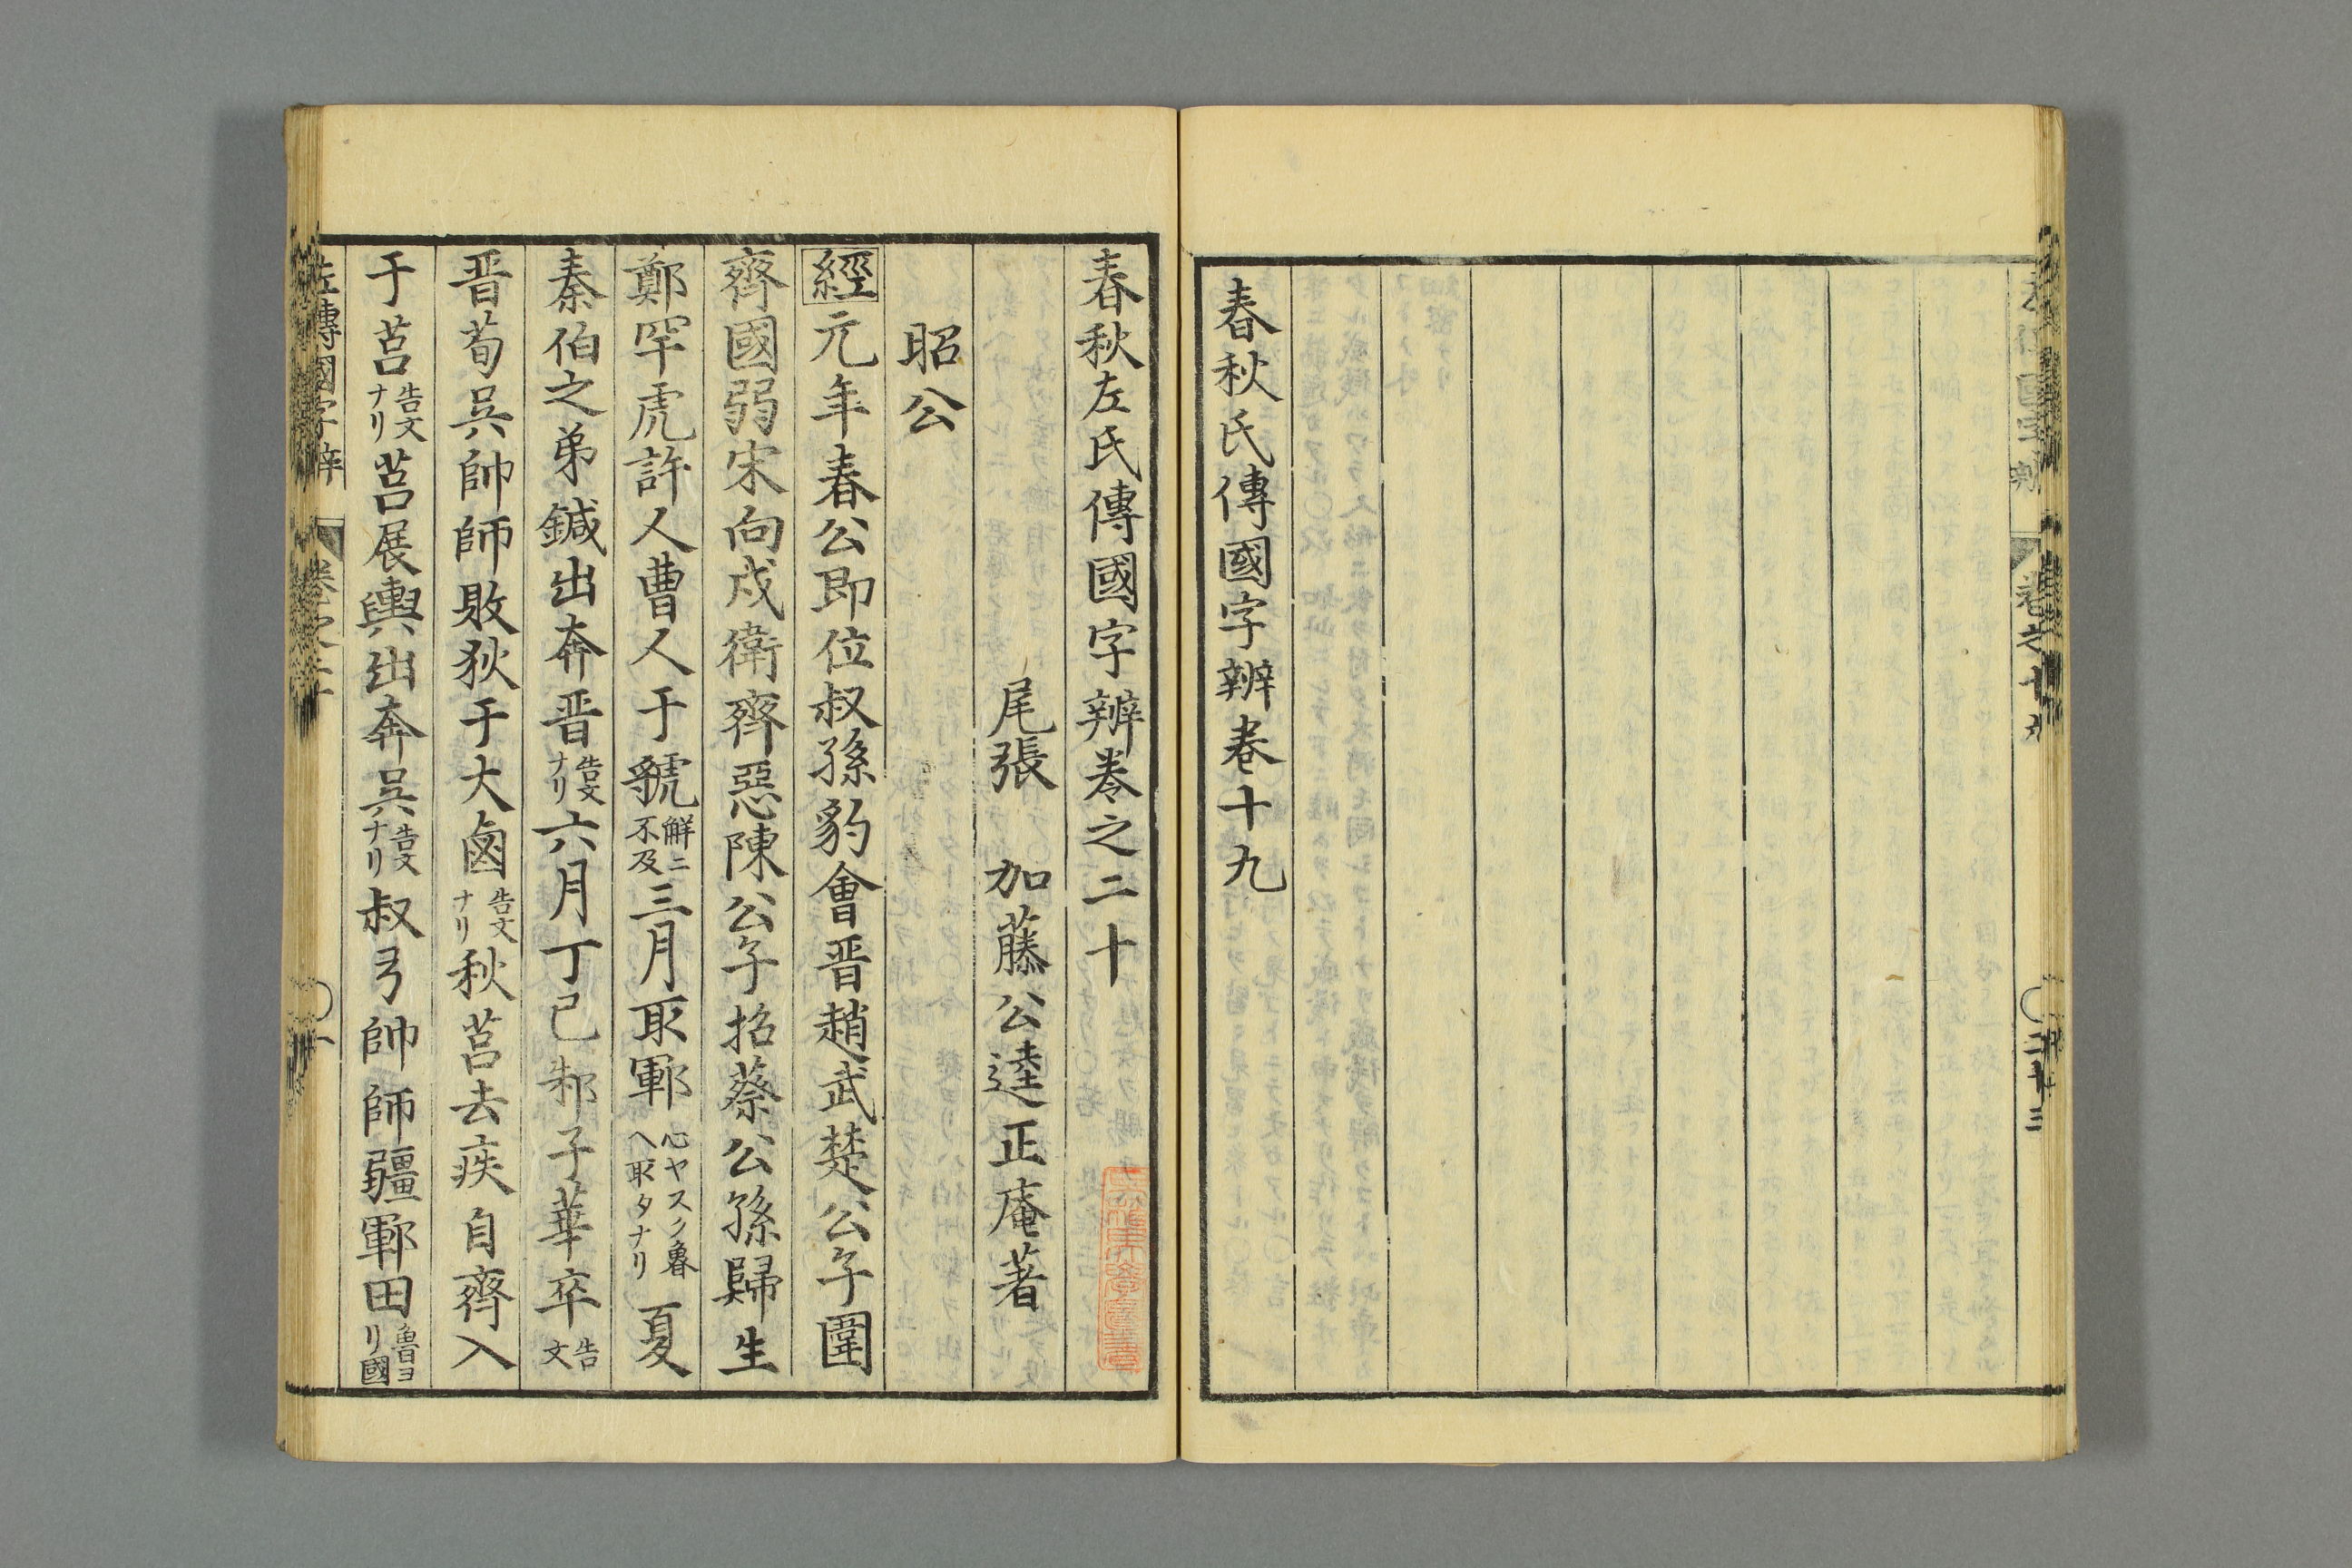 春秋氏傳國字辨卷十九
春秋左氏傳國字辨卷之二十
尾張 加藤公逵正庵著
昭公
經元年春公即位叔孫豹會晋趙武楚公子圍
齊國弱宋向戍衛齊惡陳公子招蔡公孫歸生
鄭罕虎許人曹人于虢解ニ不及三月取鄆心ヤスク魯ヘ取タナリ夏
秦伯之弟鍼出奔晋告文ナリ六月丁巳邾子華卒告文
晋荀吳帥師敗狄于大鹵告文ナリ秋莒去疾自齊入
于莒告文ナリ莒展輿出奔吳告文ナリ叔弓帥師疆鄆田魯ヨリ國
左傳國字辨